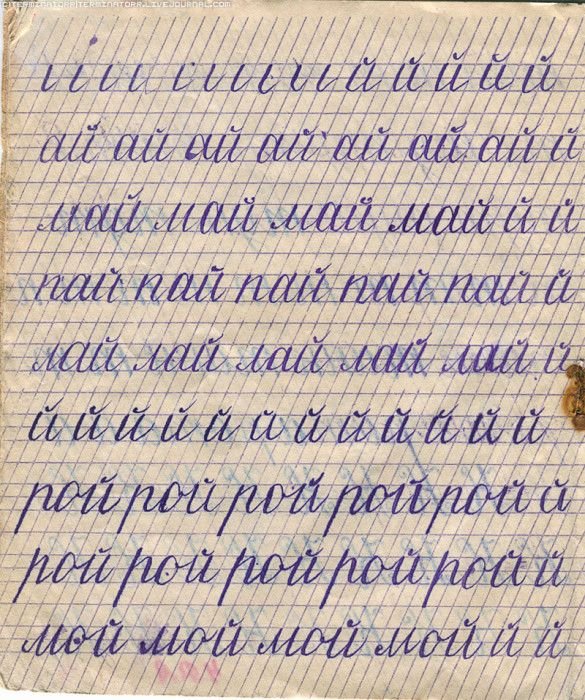 ai й й й й й
ай ай ай ай ай ай ай й
май май май май й й
пай пай пай пай пай й
лай лай лай лай лай й
й й й й й й й й й й й й
рой рой рой рой рой й
рой рой рой рой рой й
мой мой мой мой й й